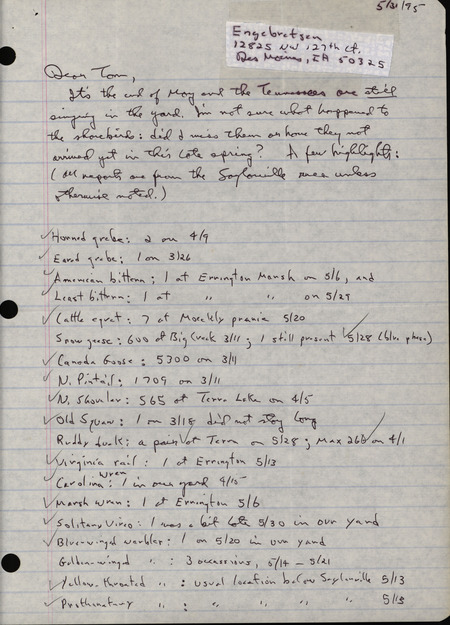 5/31/95
Engebretsen
12825 NW 127th Ct.
Des Moines, IA 50325
Dear Tom,
It's the end of May and the Tennessees are still
singing in the yard. I'm not sure what happened to
the shorebirds: did I miss them or have they not
arrived yet in this late spring? A few highlights:
(All reports are from the Saylorville area unless
otherwise noted.)
Horned grebe: 2 on 4/9
Eared grebe: 1 on 3/26
American bittern: 1 at Errington Marsh on 5/6, and
Least bittern: 1 at " " on 5/29
Cattle egret: 7 at Moeckly prairie 5/20
Snow goose: 600 at Big Creek 3/11; 1 still present 5/28 (blue phase)
Canada Goose: 5300 on 3/11
N. Pintail: 1709 on 3/11
N. Shoveler: 565 at Terra Lake on 4/5
Old Squaw: 1 on 3/18 did not stay long
Ruddy duck: a pair at Terra on 5/28; Max 266 on 4/1
Virginia rail: 1 at Errington 5/13
Carolina wren: 1 in our yard 4/15
Marsh wren: 1 at Errington 5/6
Solitary Vireo: 1 was a bit late 5/30 in our yard
Blue-winged warbler: 1 on 5/20 in our yard
Golden-winged " : 3 occasions, 5/14 - 5/21
Yellow-throated " : usual location below Saylorville 5/13
Prothonotary " : " " " " 5/13